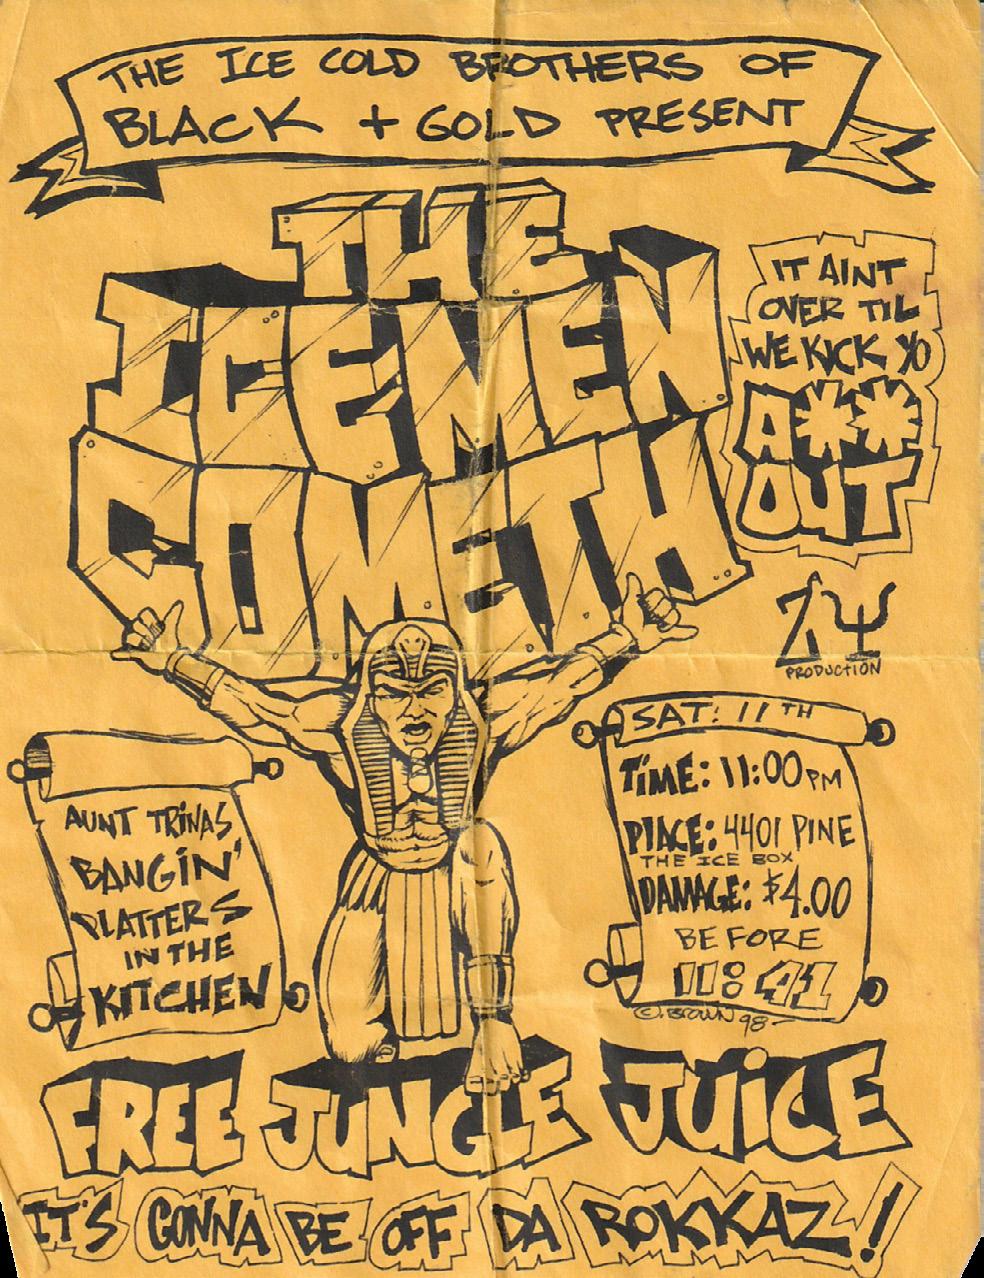 THE ICE COLD BROTHERS OF
BLACK + GOLD PRESENT
THE
ICEMEN
COMETH
IT AINT
OVER TIL
WE KICK YO
A**
OUT
ΖΨ
PRODUCTION
SAT: 11TH
TIME: 11:00 PM
PLACE: 4401 PINE
THE ICE BOX
DAMAGE: $4.00
BEFORE
11:41
©.BROWN 98
AUNT TRINAS
BANGIN'
PLATTERS
IN THE
KITCHEN
FREE JUNGLE JUICE
IT'S GONNA BE OFF DA ROKKAZ!